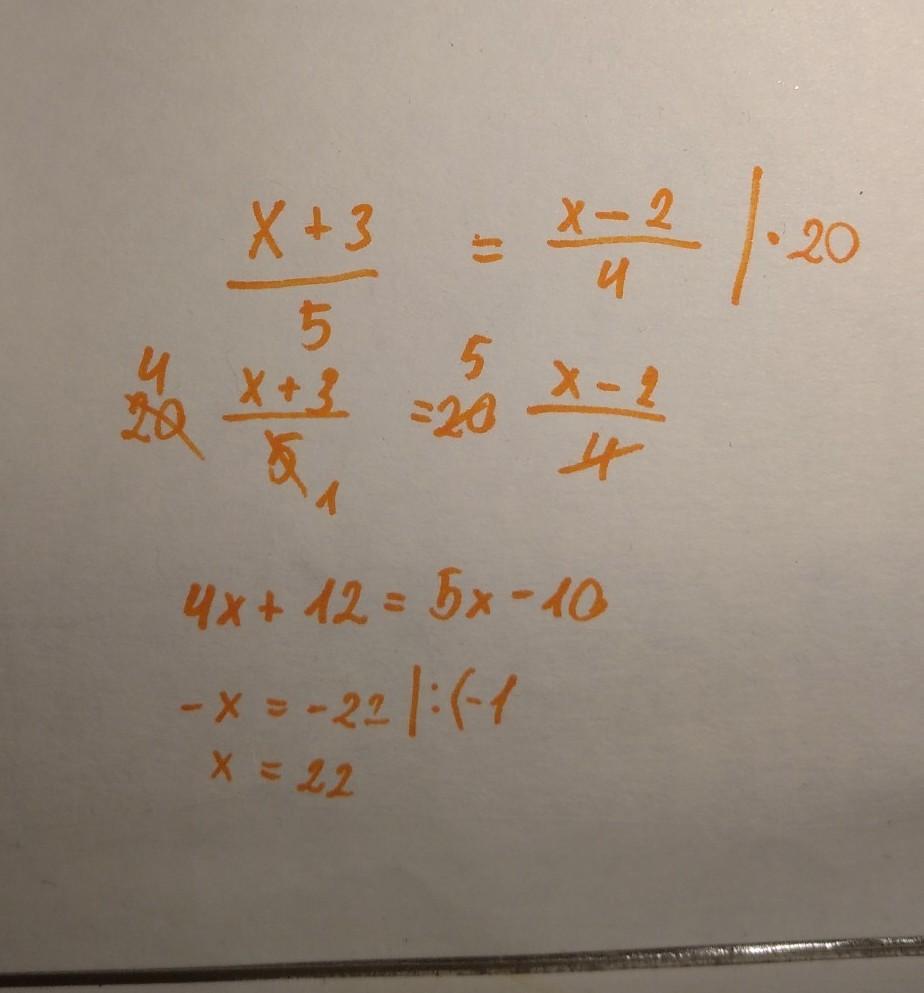 x + 3 / 5 = x - 2 / 4 | · 20
4 20 x + 3 / 5 1 = 5 20 x - 2 / 4
4x + 12 = 5x - 10
-x = -22 | : (-1
x = 22